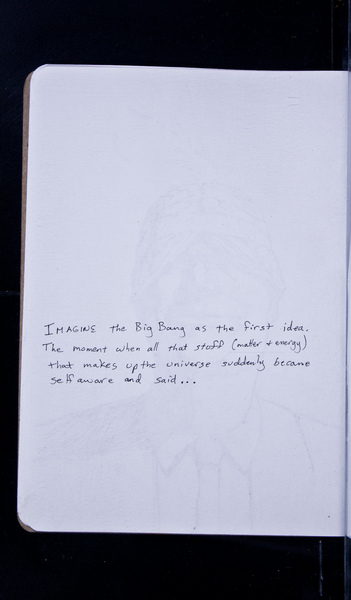 IMAGINE the Big Bang as the first idea.
The moment when all that stuff (matter + energy)
that makes up the universe suddenly became
self aware and said...